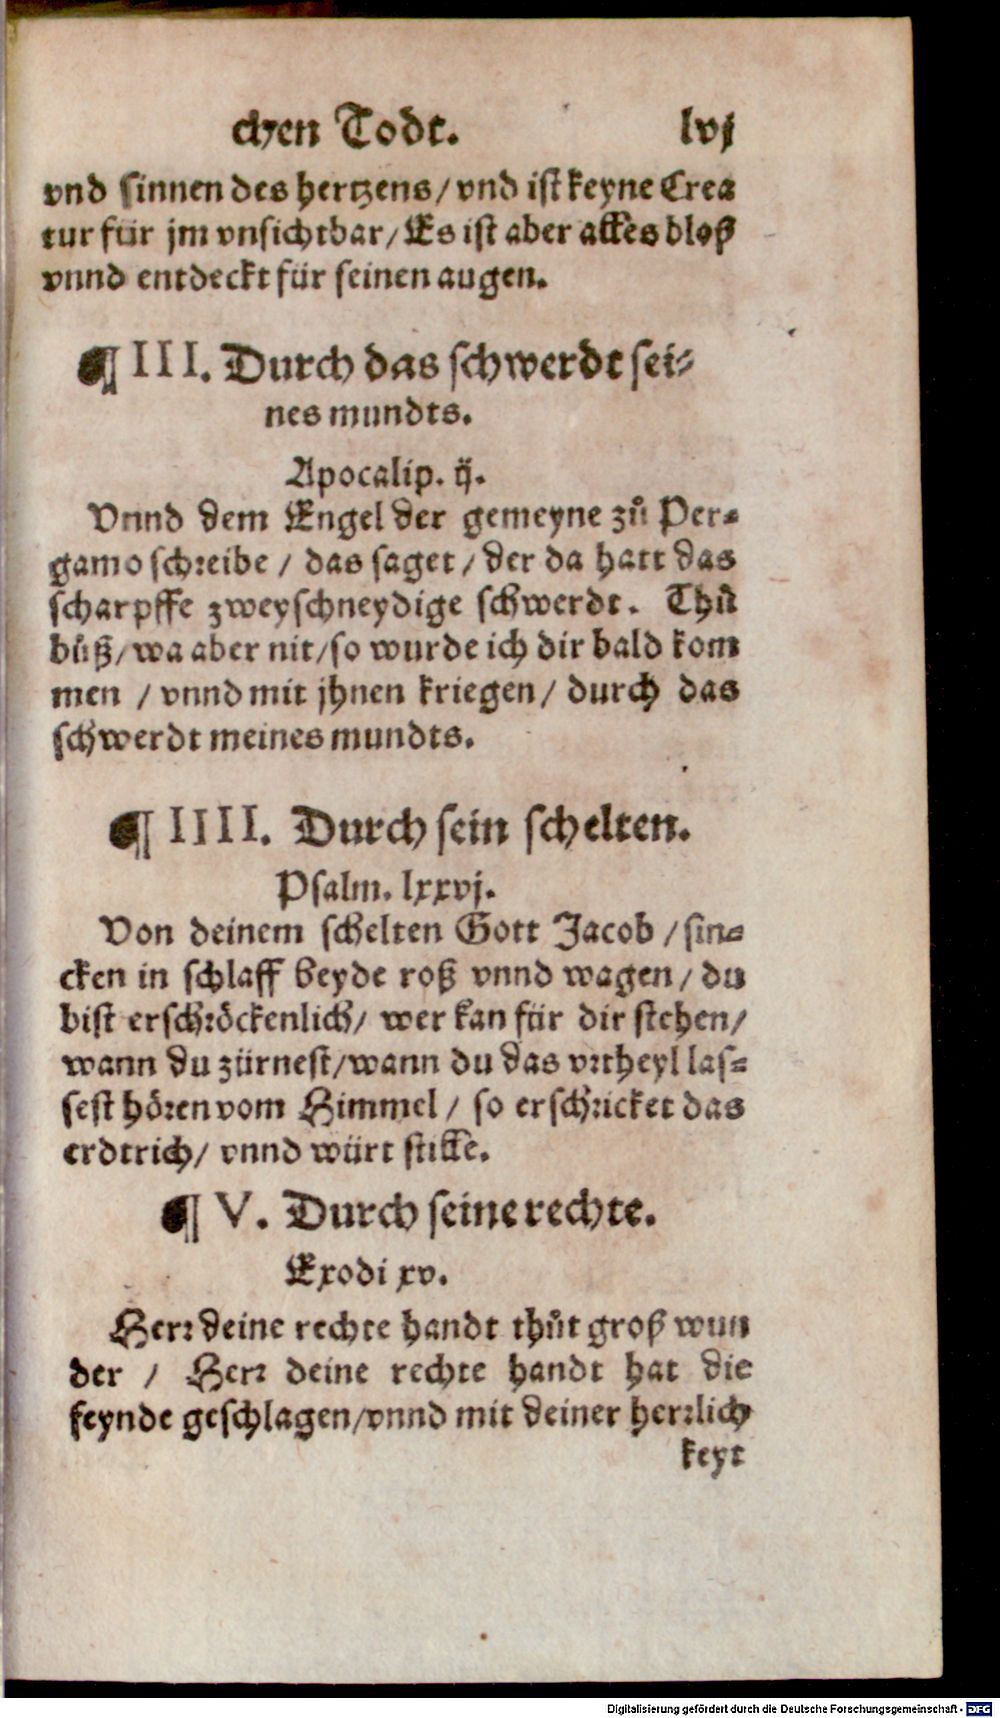 chen Todt. lvj
vnd sinnen des hertzens / vnd ist keyne Crea
tur für jm vnsichtbar / Es ist aber alles bloß
vnnd entdeckt für seinen augen.
¶ III. Durch das schwerdt sei⸗
nes mundts.
Apocalip. ij.
Vnnd dem Engel der gemeyne zů Per⸗
gamo schreibe / das saget / der da hatt das
scharpffe zweyschneydige schwerdt. Thů
bůß / wa aber nit / so wurde ich dir bald kom
men / vnnd mit jhnen kriegen / durch das
schwerdt meines mundts.
¶ IIII. Durch sein schelten.
Psalm. lxxvj.
Von deinem schelten Gott Jacob / sin⸗
cken in schlaff beyde roß vnnd wagen / du
bist erschröckenlich / wer kan für dir stehen /
wann du zürnest / wann du das vrtheyl las⸗
sest hören vom Himmel / so erschricket das
erdtrich / vnnd würt stille.
¶ V. Durch seine rechte.
Exodi xv.
Herr deine rechte handt thůt groß wun
der / Herr deine rechte handt hat die
feynde geschlagen / vnnd mit deiner herrlich
keyt
Digitalisierung gefördert durch die Deutsche Forschungsgemeinschaft - DFG